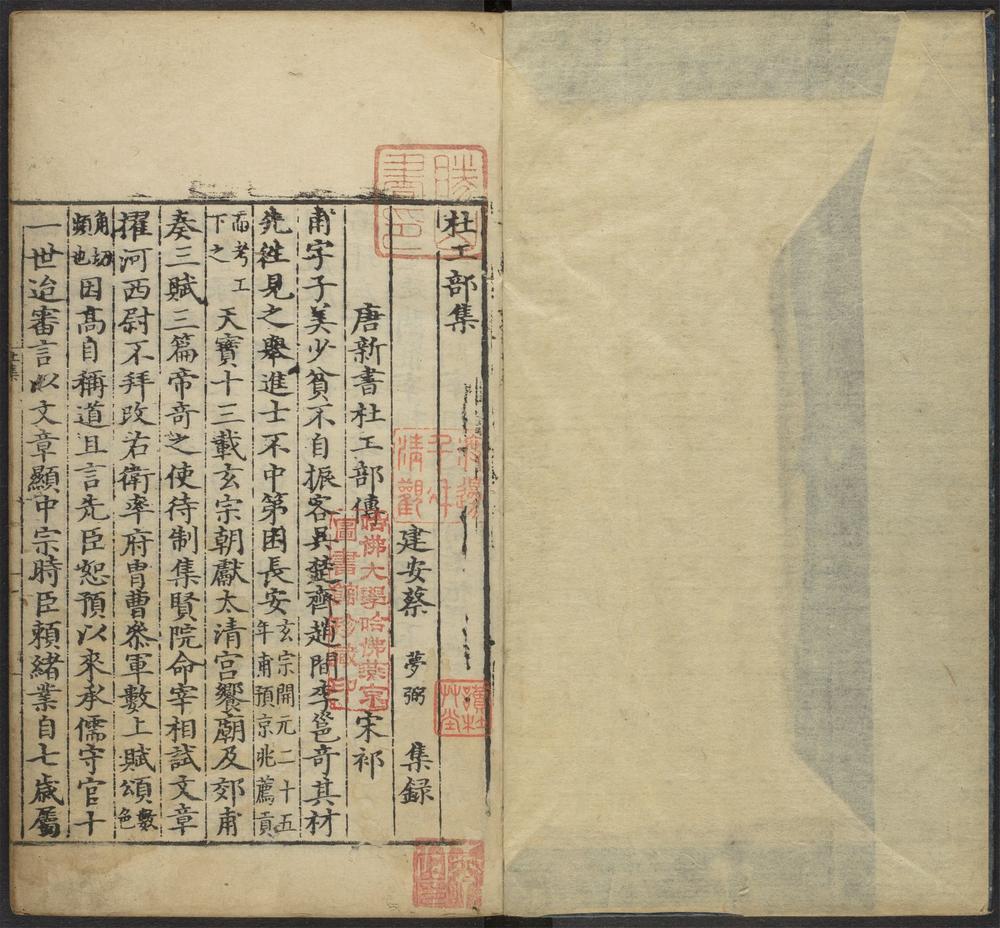 杜工部集
建安蔡 夢弼 集録
唐新書杜工部傳 宋祁
甫字子美少貧不自振客吳楚齊趙間李邕奇其材
先往見之舉進士不中第困長安玄宗開元二十五年甫預京兆薦貢
而考工下之天寶十三載玄宗朝獻太清宮饗廟及郊甫
奏三賦三篇帝奇之使待制集賢院命宰相試文章
擢河西尉不拜改右衛率府冑曹叅軍數上賦頌數色
角切頻也因髙自稱道且言先臣恕預以來承儒守官十
一世迨審言以文章顯中宗時臣頼緒業自七歲屬
哈佛大學哈佛燕京
圖書館珍藏印
讀杜